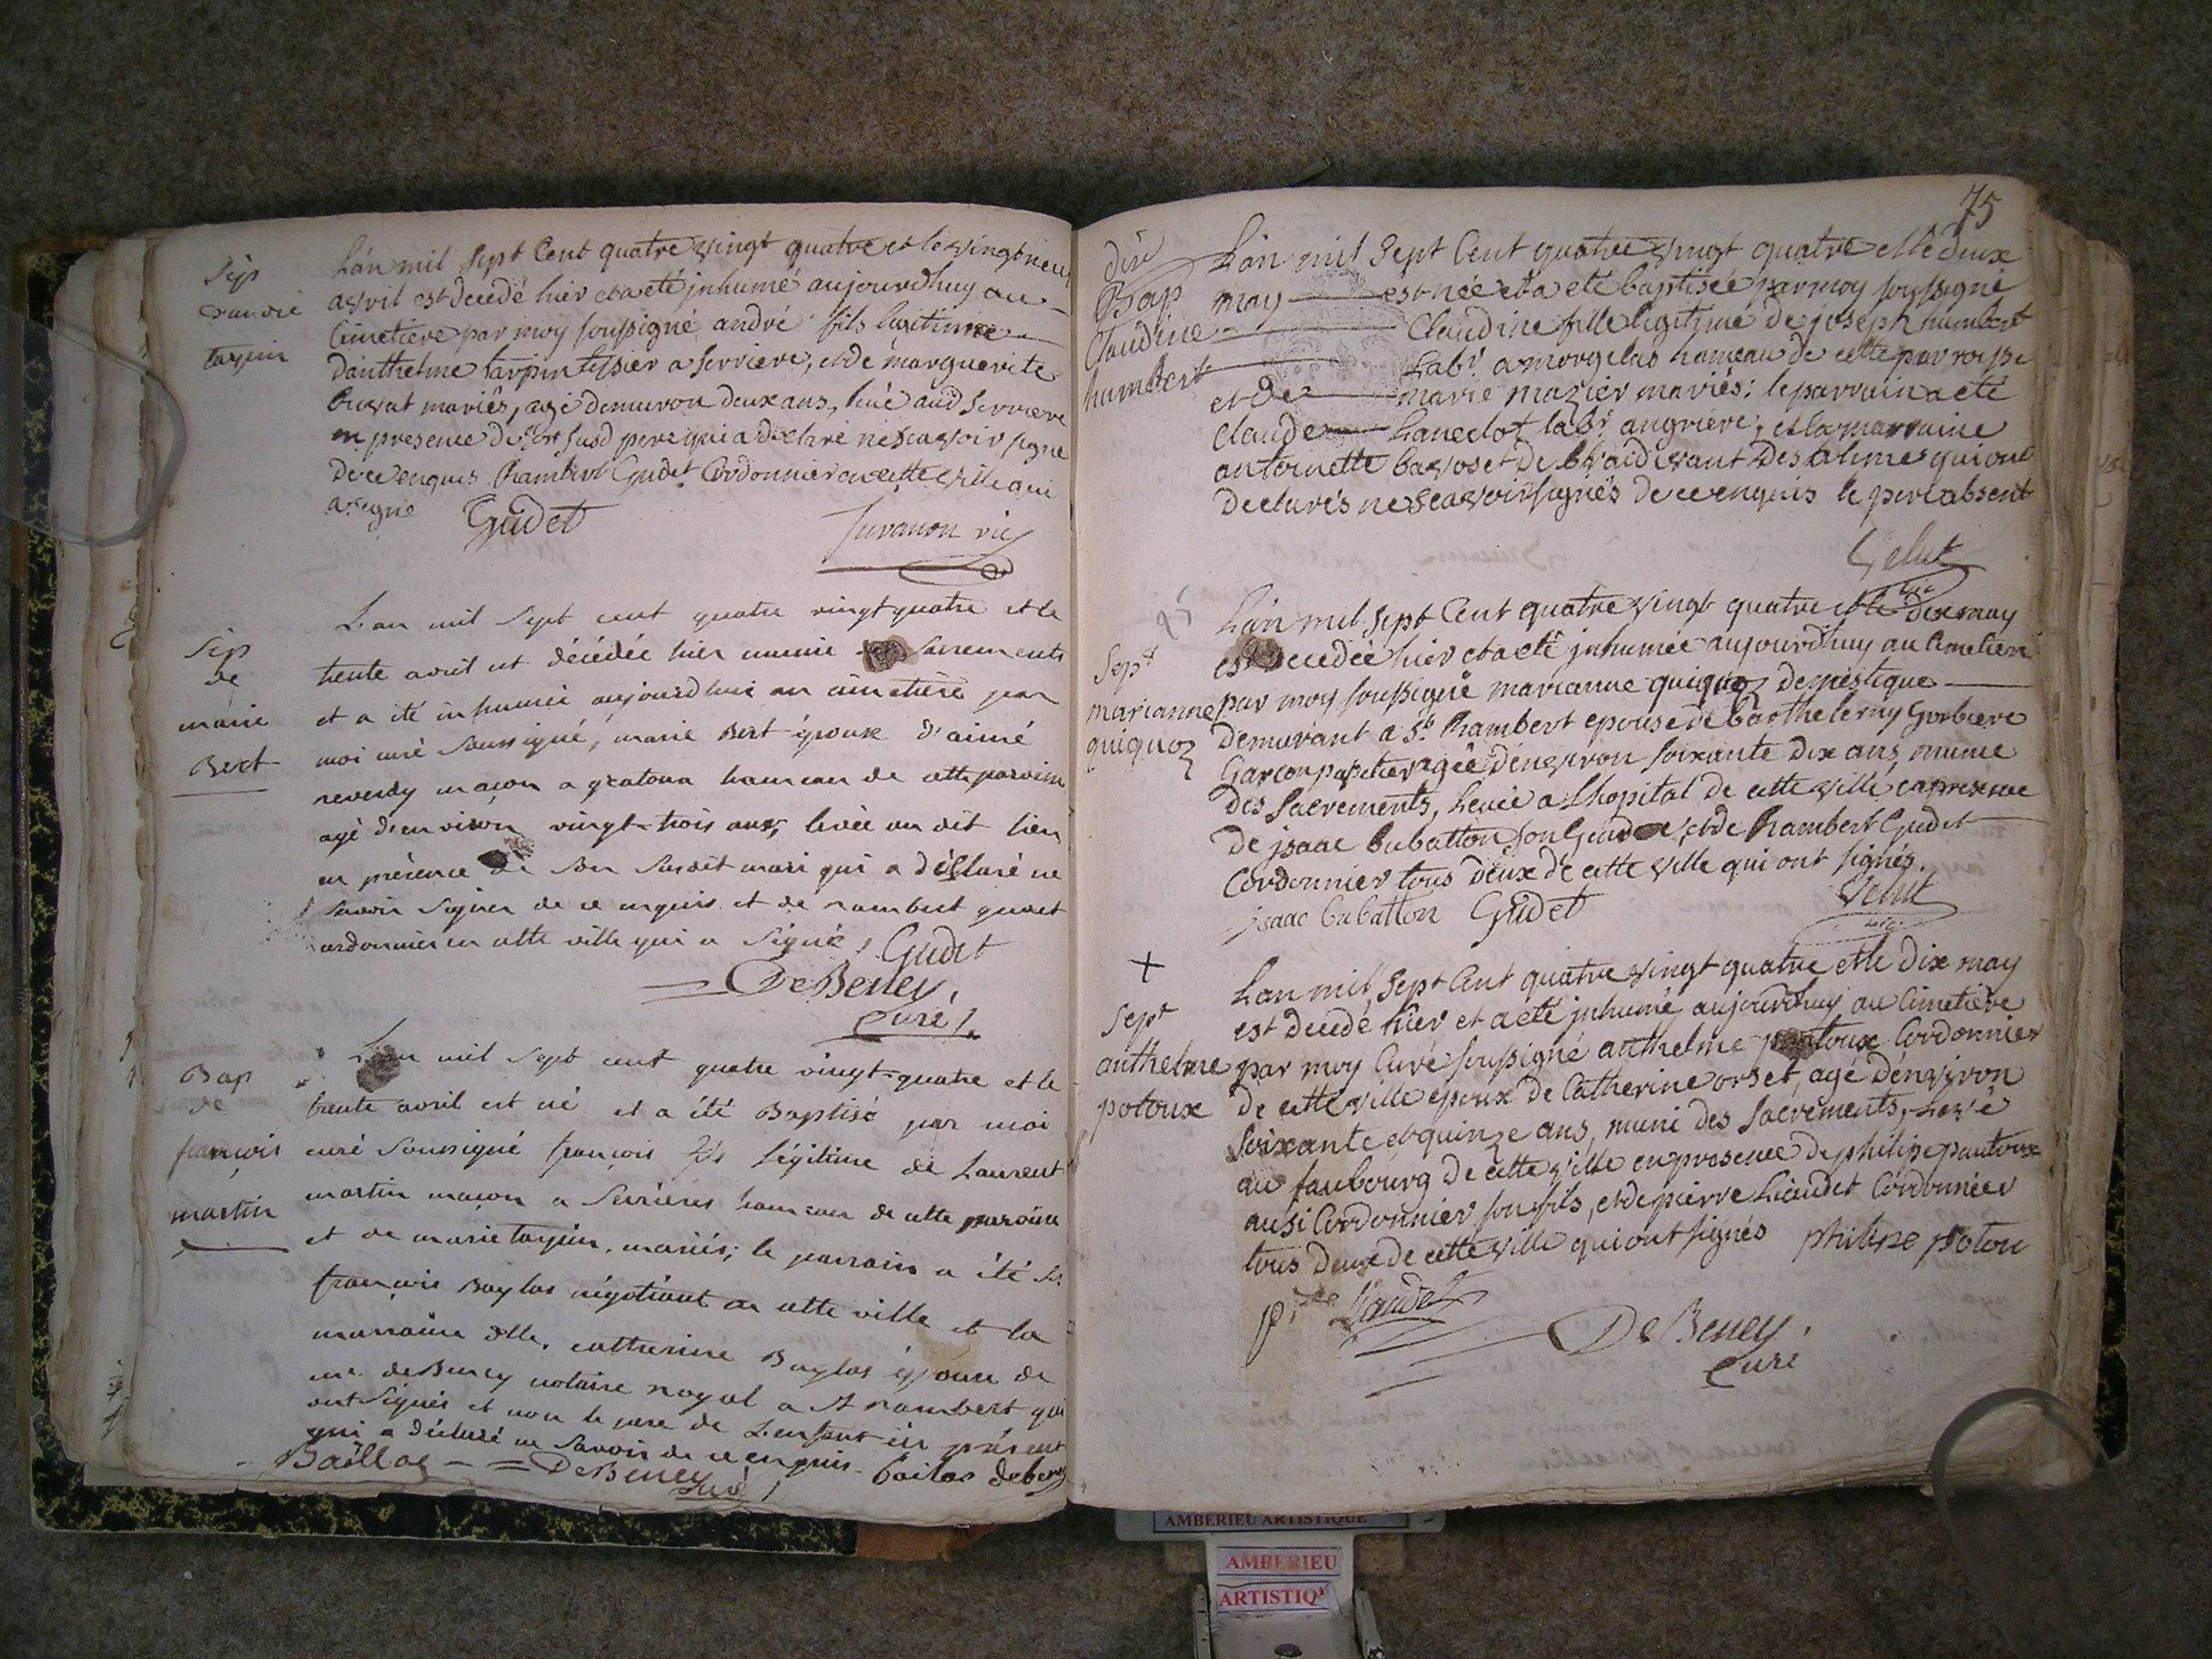 Sep
d'andré
tarpin
L'an mil sept Cent quatre vingt quatre et le vingt neuf
avril est decedé hier et a eté jnhumé aujourdhuy au
Cimetiere par moy soussigné andré fils legitime
d'anthelme tarpin tissier a serriere, et de marguerite
buvat mariés, agé denviron deux ans, levé aud serriere
en presence de son susd pere qui a declaré ne scavoir signe
de ce enquis Rambert Gudet Cordonnier en cette ville qui
a signé Gudet
Juvanon vic
Sep
de
marie
Bert
L'an mil sept cent quatre vingt quatre et le
trente avril est décédée hier munie des sacrements
et a été inhumée aujourd'hui au cimetière par
moi curé soussigné, marie Bert épouse d'aimé
reverdy maçon a gratoux hameau de cette paroisse
agé d'environ vingt-trois ans, levée au dit lieu
en présence de son susdit mari qui a déclaré ne
savoir signer de ce enquis et de rambert gudet
cordonnier en cette ville qui a signé, Gudet
= De Beney,
curé /.
Bap
de
françois
martin
L'an mil sept cent quatre vingt-quatre et le
trente avril est né et a été Baptisé par moi
curé soussigné françois fils légitime de Laurent
martin maçon a serrières hameau de cette paroisse
et de marie tarpin, mariés; le parrain a été Sr.
françois Baylas négotiant en cette ville et la
marraine dlle. catherine Baylas épouse de
me. de Beney notaire royal a St rambert qui
ont signés et non le pere de L'enfant ici présent
qui a déclaré ne savoir de ce enquis. bailas debeney
Baillas - = De Beney
curé /
75
dix
Bap
Claudine
humbert
L'an mil sept Cent quatre vingt quatre et le deux
may est née et a eté baptisée par moy soussigné
Claudine fille legitime de joseph humbert
Labr. a morgelas hameau de cette parroisse
et de marie mazier mariés: le parrain a eté
Claude Lanclot labr. angriere, et la marraine
antoinette bavoset de
declarés ne scavoir signés de ce enquis le pere absent
Velut
vic
Sept
marianne
quiquoz
L'an mil sept Cent quatre vingt quatre et le dix may
est decedée hier et a eté jnhumée aujourdhuy au Cimetiere
par moy soussigné marianne quiquoz demestique
demeurant a St. Rambert epouse de barthelemy Gorbiere
Garcon papetier agée d'environ soixante dix ans, munie
des Sacrements, levée a Lhopital de cette ville en presence
de jsaac bubatton son Gendre, et de Rambert Gudet
Cordonnier tous deux de cette ville qui ont signés.
jsaac bubatton Gudet Velut
vic.
+
Sept
anthelme
potoux
L'an mil Sept Cent quatre vingt quatre et le dix may
est decedé hier et a eté jnhumé aujourdhuy au Cimetiere
par moy Curé soussigné anthelme pautoux Cordonnier
de cette ville epoux de Catherine orset, agé d'environ
soixante et quinze ans, muni des Sacrements, Levé
au fauxbourg de cette ville en presence de philipe pautoux
ausi Cordonnier son fils, et de pierre Liaudet Cordonnier
tous deux de cette ville qui ont signés philipe potou
pre Liaudet
De Beney,
curé
AMBERIEU ARTISTIQUE
AMBERIEU
ARTISTIQ